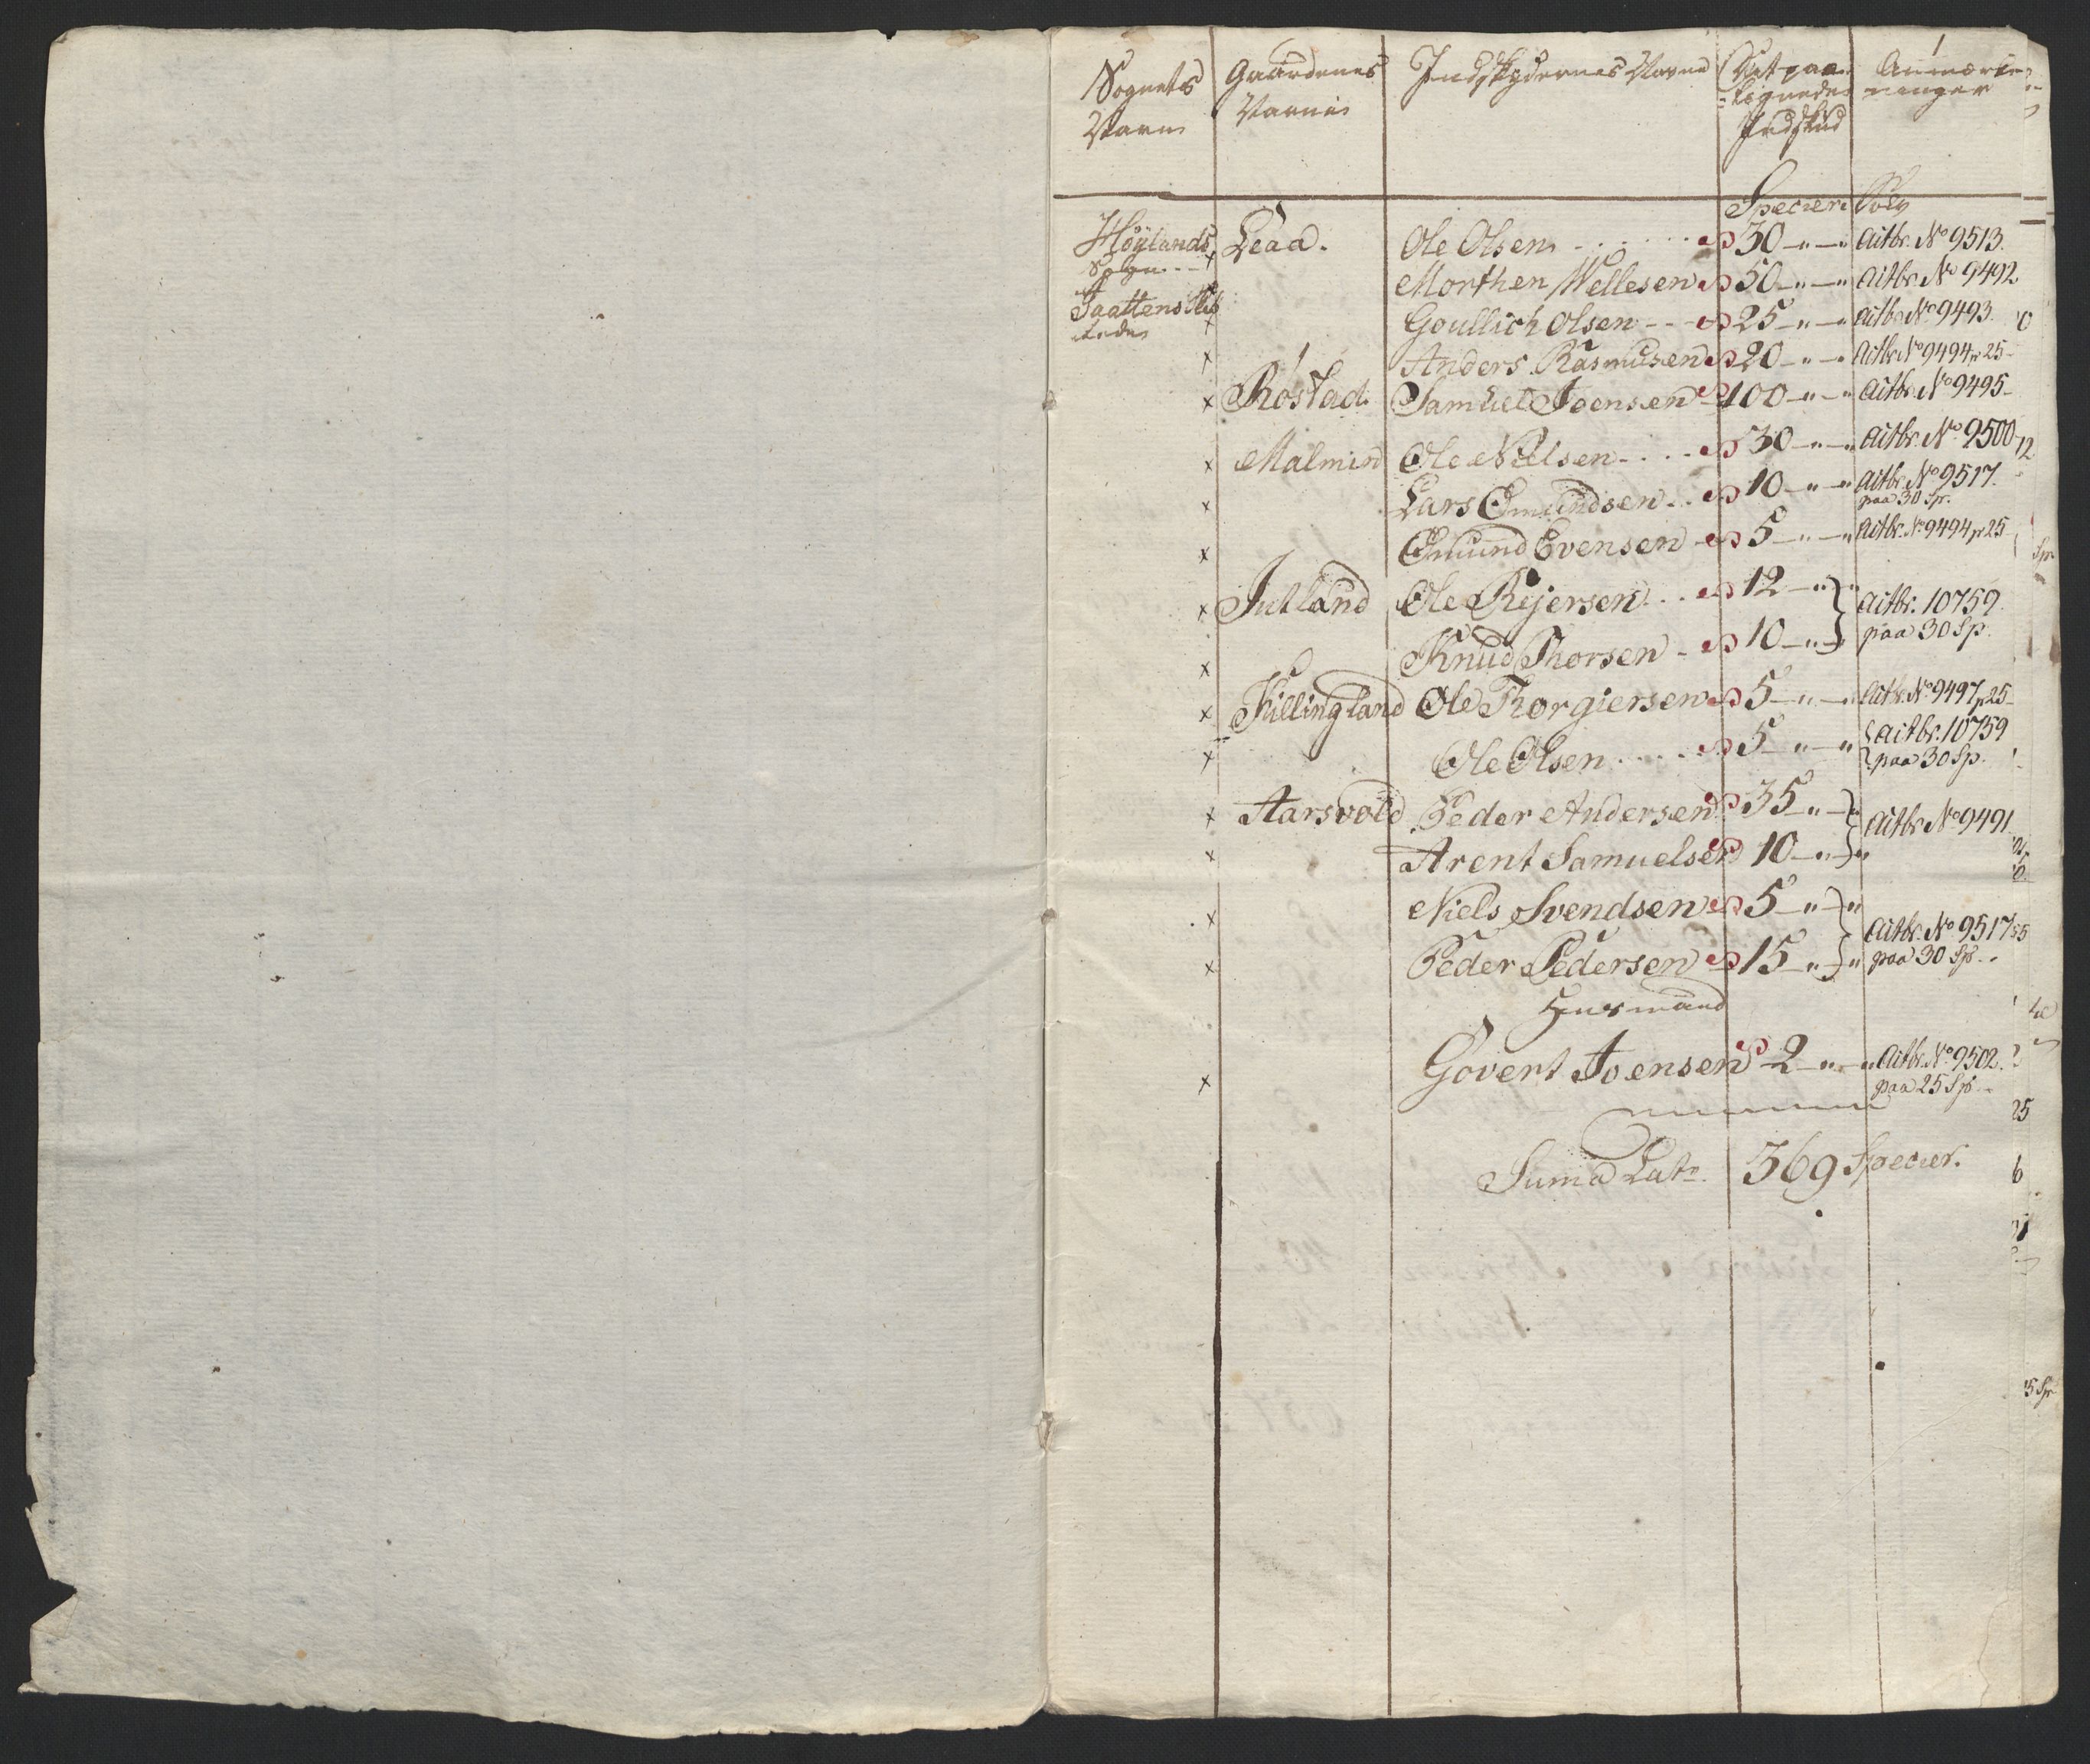 1
Sognets Navn
Gaardenes Navne
Indskydernes Navne
Det paalignede Indskud
Anmærkninger
Species Sølv
Høylands Sogn
Jaattens Skibrede
Leaa. Ole Olsen 30 Aitbr. No 9513.
Morthen Wellesen 50 Aitbr. No 9492.
x Goullich Olsen 25 Aitbr No 9493.
x Anders Rasmusen 20 Aitbr No 9494 p 25
x Røstad Samuel Joensen 100 Aitbr. No 9495
x Malmin Ole Nielsen 30 Aitbr. No 9500
x Lars Omundsen 10 Aitbr. No 9517.
paa 30 Sp.
x Omund Evensen 5 Aitbr. No 9494 p 25
x Jutland Ole Rejersen 12 Aitbr. 10759.
x Knud Thorsen 10 paa 30 Sp.
x Killingland Ole Thorgiersen 5 Aitbr. No 9497 p 25
x Ole Olsen 5 Aitbr. 10759
paa 30 Sp.
x Aarsvold Peder Andersen 35 Aitbr No 9491
x Arent Samuelsen 10
x Niels Svendsen 5 Aitbr. No 9517
x Peder Pedersen 15 paa 30 Sp.
Husmand
x Govert Joensen 2 Aitbr. No 9502.
paa 25 Sp.
Suma Lat. 369 Specier.